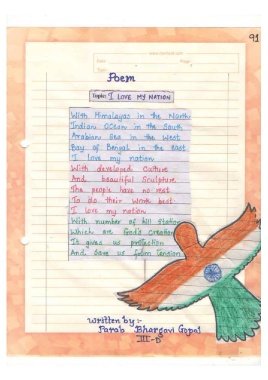 91
Date
Page
Poem
Topic: I LOVE MY NATION
With Himalayas in the North
Indian Ocean in the South
Arabian Sea in the West
Bay of Bengal in the east
I love my nation
With developed culture
And beautiful Sculpture
The people have no rest
To do their work best
I love my nation
With number of hill station
Which are God's creation
It gives us protection
And save us from tension
written by:-
Parab Bhargavi Gopal
III-D